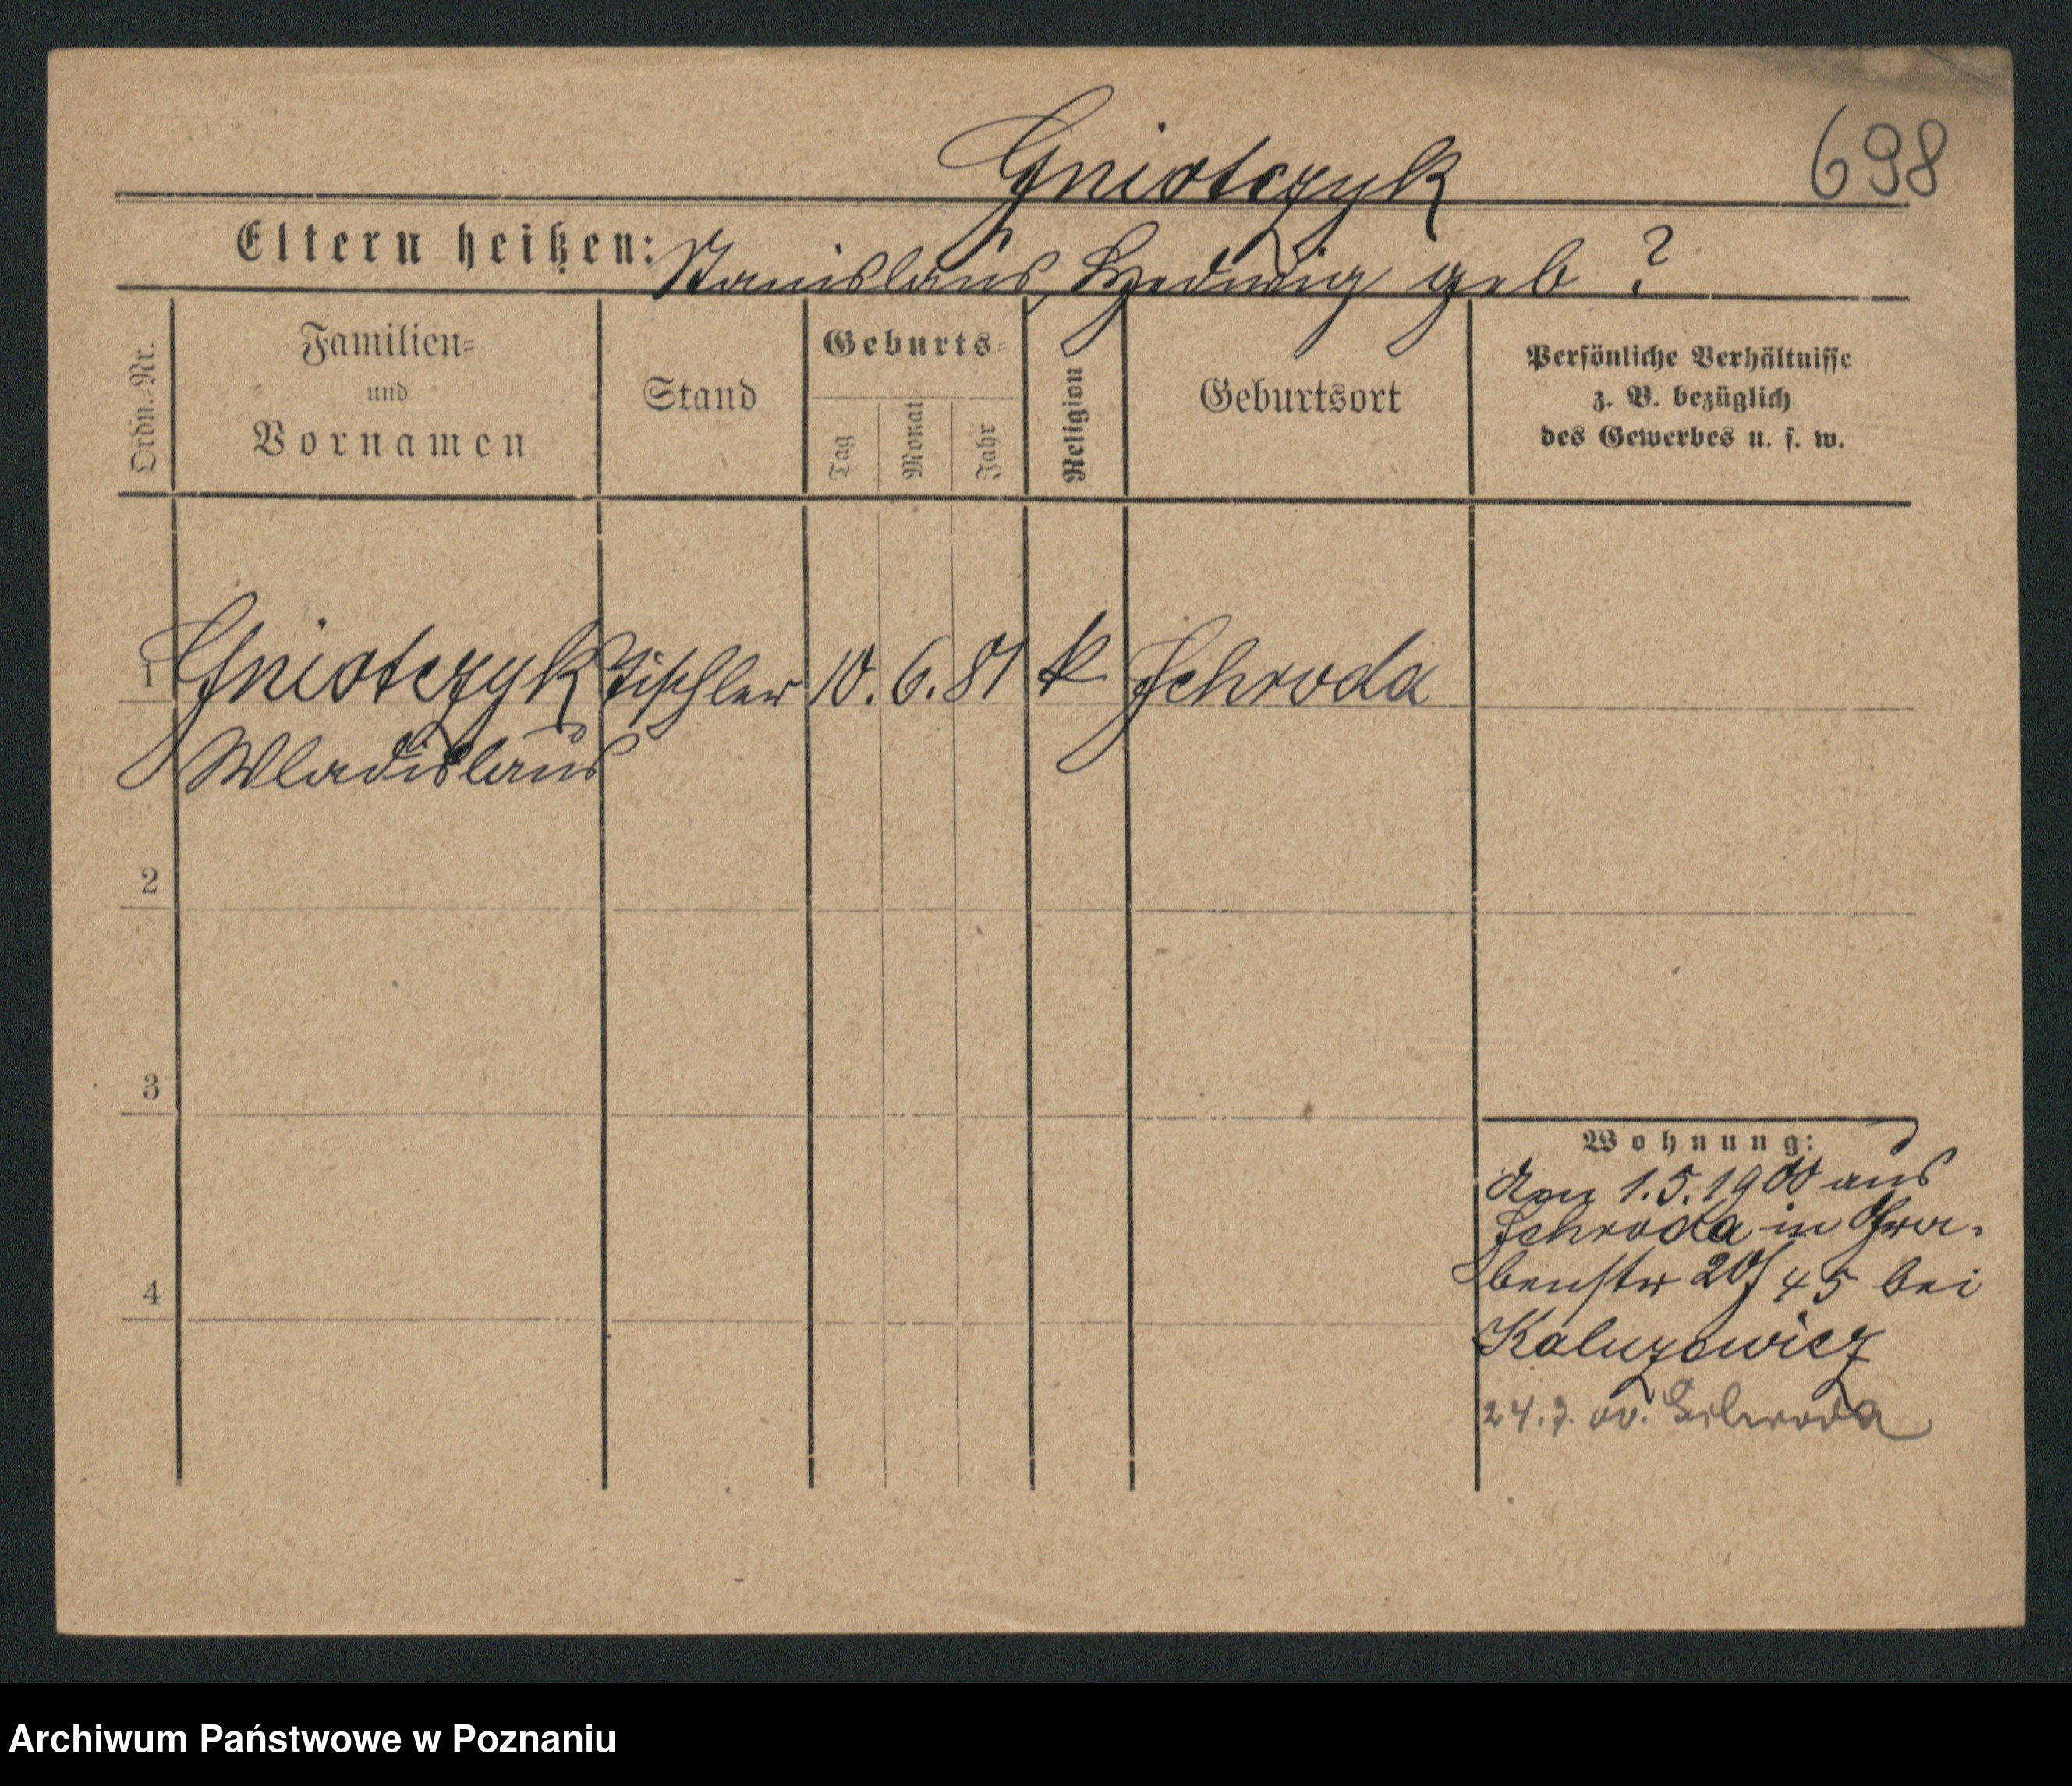 Gniotczyk 698
Eltern heißen: Stanislaus, Hedwig geb ?
Ordn.-Nr. Familien= und Vornamen Stand Geburts= Tag Monat Jahr Religion Geburtsort Persönliche Verhältnisse z. B. bezüglich des Gewerbes u. s. w.
1 Gniotczyk Tischler 10. 6. 81 k Schroda
Wladislaus
2
3
4
Wohnung:
den 1.5.1900 aus
Schroda in Gra-
benstr 20/45 bei
Kaluzewicz
24. 00. Schroda
Archiwum Państwowe w Poznaniu